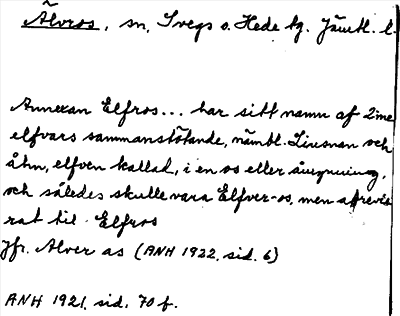 Älvros, sn, Svegs o. Hede tg. Jämtl. l.
Annexan Elfros... har sitt namn af 2:ne
elfvars sammanstötande, nämbl. Liusnan och
åhn, elfven kallad, i en os eller åmynning,
och således skulle vara Elfver-os, men abrevie
rat til Elfros
Jfr. Alver as (ANH 1922. sid. 6)
ANH 1921. sid. 70 f.